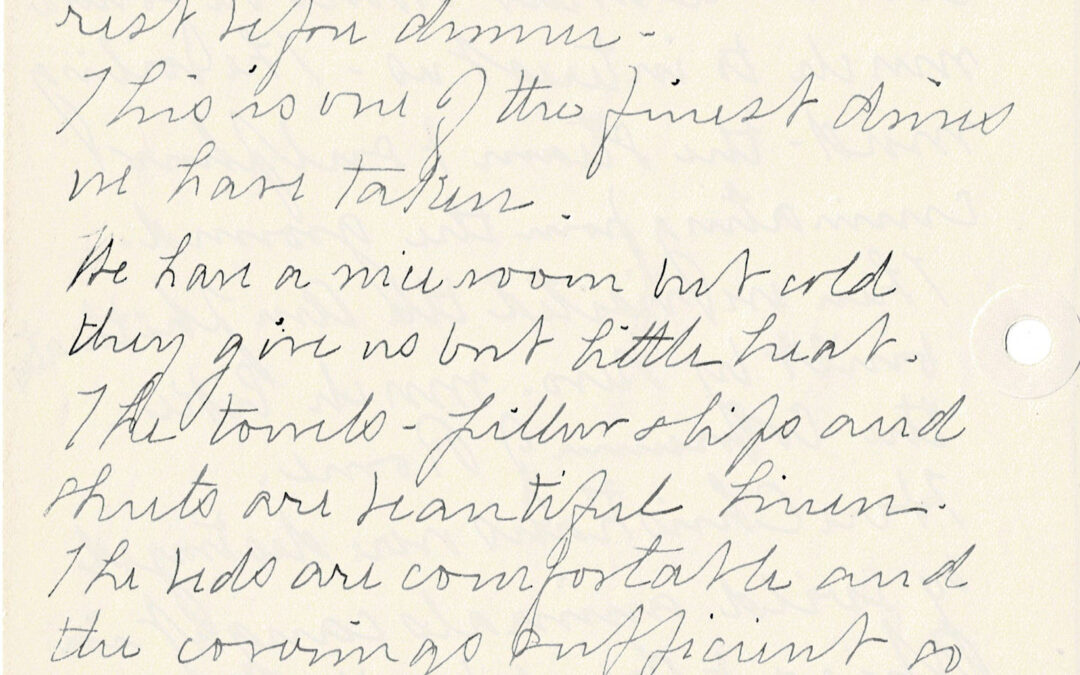 rest before dinner -
This is one of the finest drives
we have taken.
We have a nice room but cold
they give us but little heat.
The towels - pillow slips and
sheets are beautiful linen.
The beds are comfortable and
the coverings sufficient so